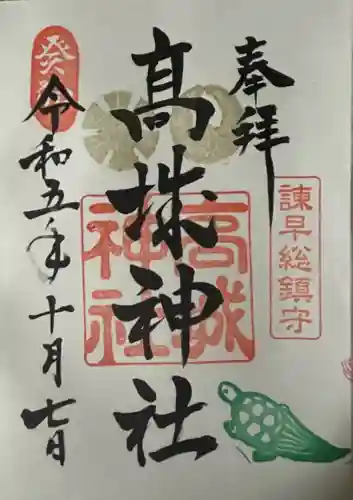 奉拝
諫早総鎮守
高城神社
高城神社
癸卯
令和五年十月七日